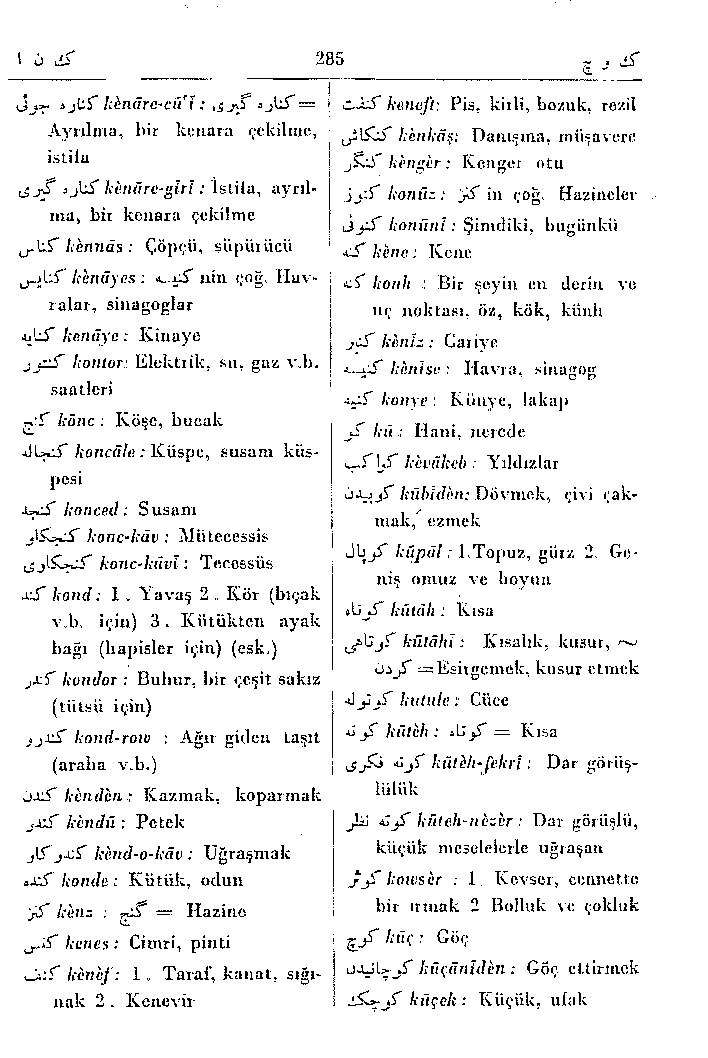 ك ن ا 285 ك و چ
كناره جوئی kènāre-cū'ī : كناره گیری =
Ayrılma, bir kenara çekilme,
istila
كناره گیری kènāre-gīrī : İstila, ayrıl-
ma, bir kenara çekilme
كناس kènnās : Çöpçü, süpürücü
كنایس kènāyes : كنیسه nin çoğ. Hav-
ralar, sinagoglar
كنایه kenāye : Kinaye
كنتور kontor: Elektrik, su, gaz v.b.
saatleri
كنج konc : Köşe, bucak
كنجاله koncāle : Küspe, susam küs-
pesi
كنجد konced : Susam
كنجكاو konc-kāv : Mütecessis
كنجكاوی konc-kāvī : Tecessüs
كند kond : 1. Yavaş 2. Kör (bıçak
v.b. için) 3. Kütükten ayak
bağı (hapisler için) (esk.)
كندر kondor : Buhur, bir çeşit sakız
(tütsü için)
كندرو kond-row : Ağır giden taşıt
(araba v.b.)
كندن kèndèn : Kazmak, koparmak
كندو kèndū : Petek
كندوكاو kènd-o-kāv : Uğraşmak
كنده konde : Kütük, odun
كنز kènz : گنج = Hazine
كنس kenes : Cimri, pinti
كنف kènèf : 1. Taraf, kanat, sığı-
nak 2. Kenevir
كنفت keneft: Pis, kirli, bozuk, rezil
كنكاش kènkāş: Danışma, müşavere
كنگر kèngèr : Kenger otu
كنوز konūz : كنز in çoğ. Hazineler
كنونی konūnī : Şimdiki, bugünkü
كنه kène : Kene
كنه konh : Bir şeyin en derin ve
uç noktası, öz, kök, künh
كنیز kènīz : Cariye
كنیسه kènīse : Havra, sinagog
كنیه konye : Künye, lakap
كو kū : Hani, nerede
كواكب kèvākeb : Yıldızlar
كوبیدن kūbīdèn: Dövmek, çivi çak-
mak, ezmek
كوپال kūpāl : 1.Topuz, gürz 2. Ge-
niş omuz ve boyun
كوتاه kūtāh : Kısa
كوتاهی kūtāhī : Kısalık, kusur, ~
كردن = Esirgemek, kusur etmek
كوتوله kutule : Cüce
كوته kūtèh : كوتاه = Kısa
كوته فكری kūtèh-fekrī : Dar görüş-
lülük
كوته نظر kūteh-nèzèr : Dar görüşlü,
küçük meselelerle uğraşan
كوثر kowsèr : 1. Kevser, cennette
bir ırmak 2 Bolluk ve çokluk
كوچ kūç : Göç
كوچانیدن kūçānīdèn : Göç ettirmek
كوچك kūçek : Küçük, ufak